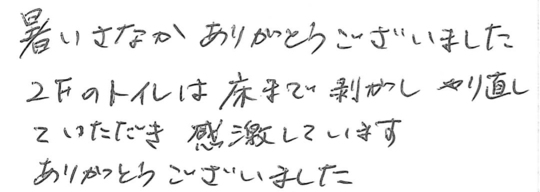 暑いさなか ありがとうございました
2Fのトイレは 床まで 剥がし やり直し
ていただき 感激しています
ありがとうございました